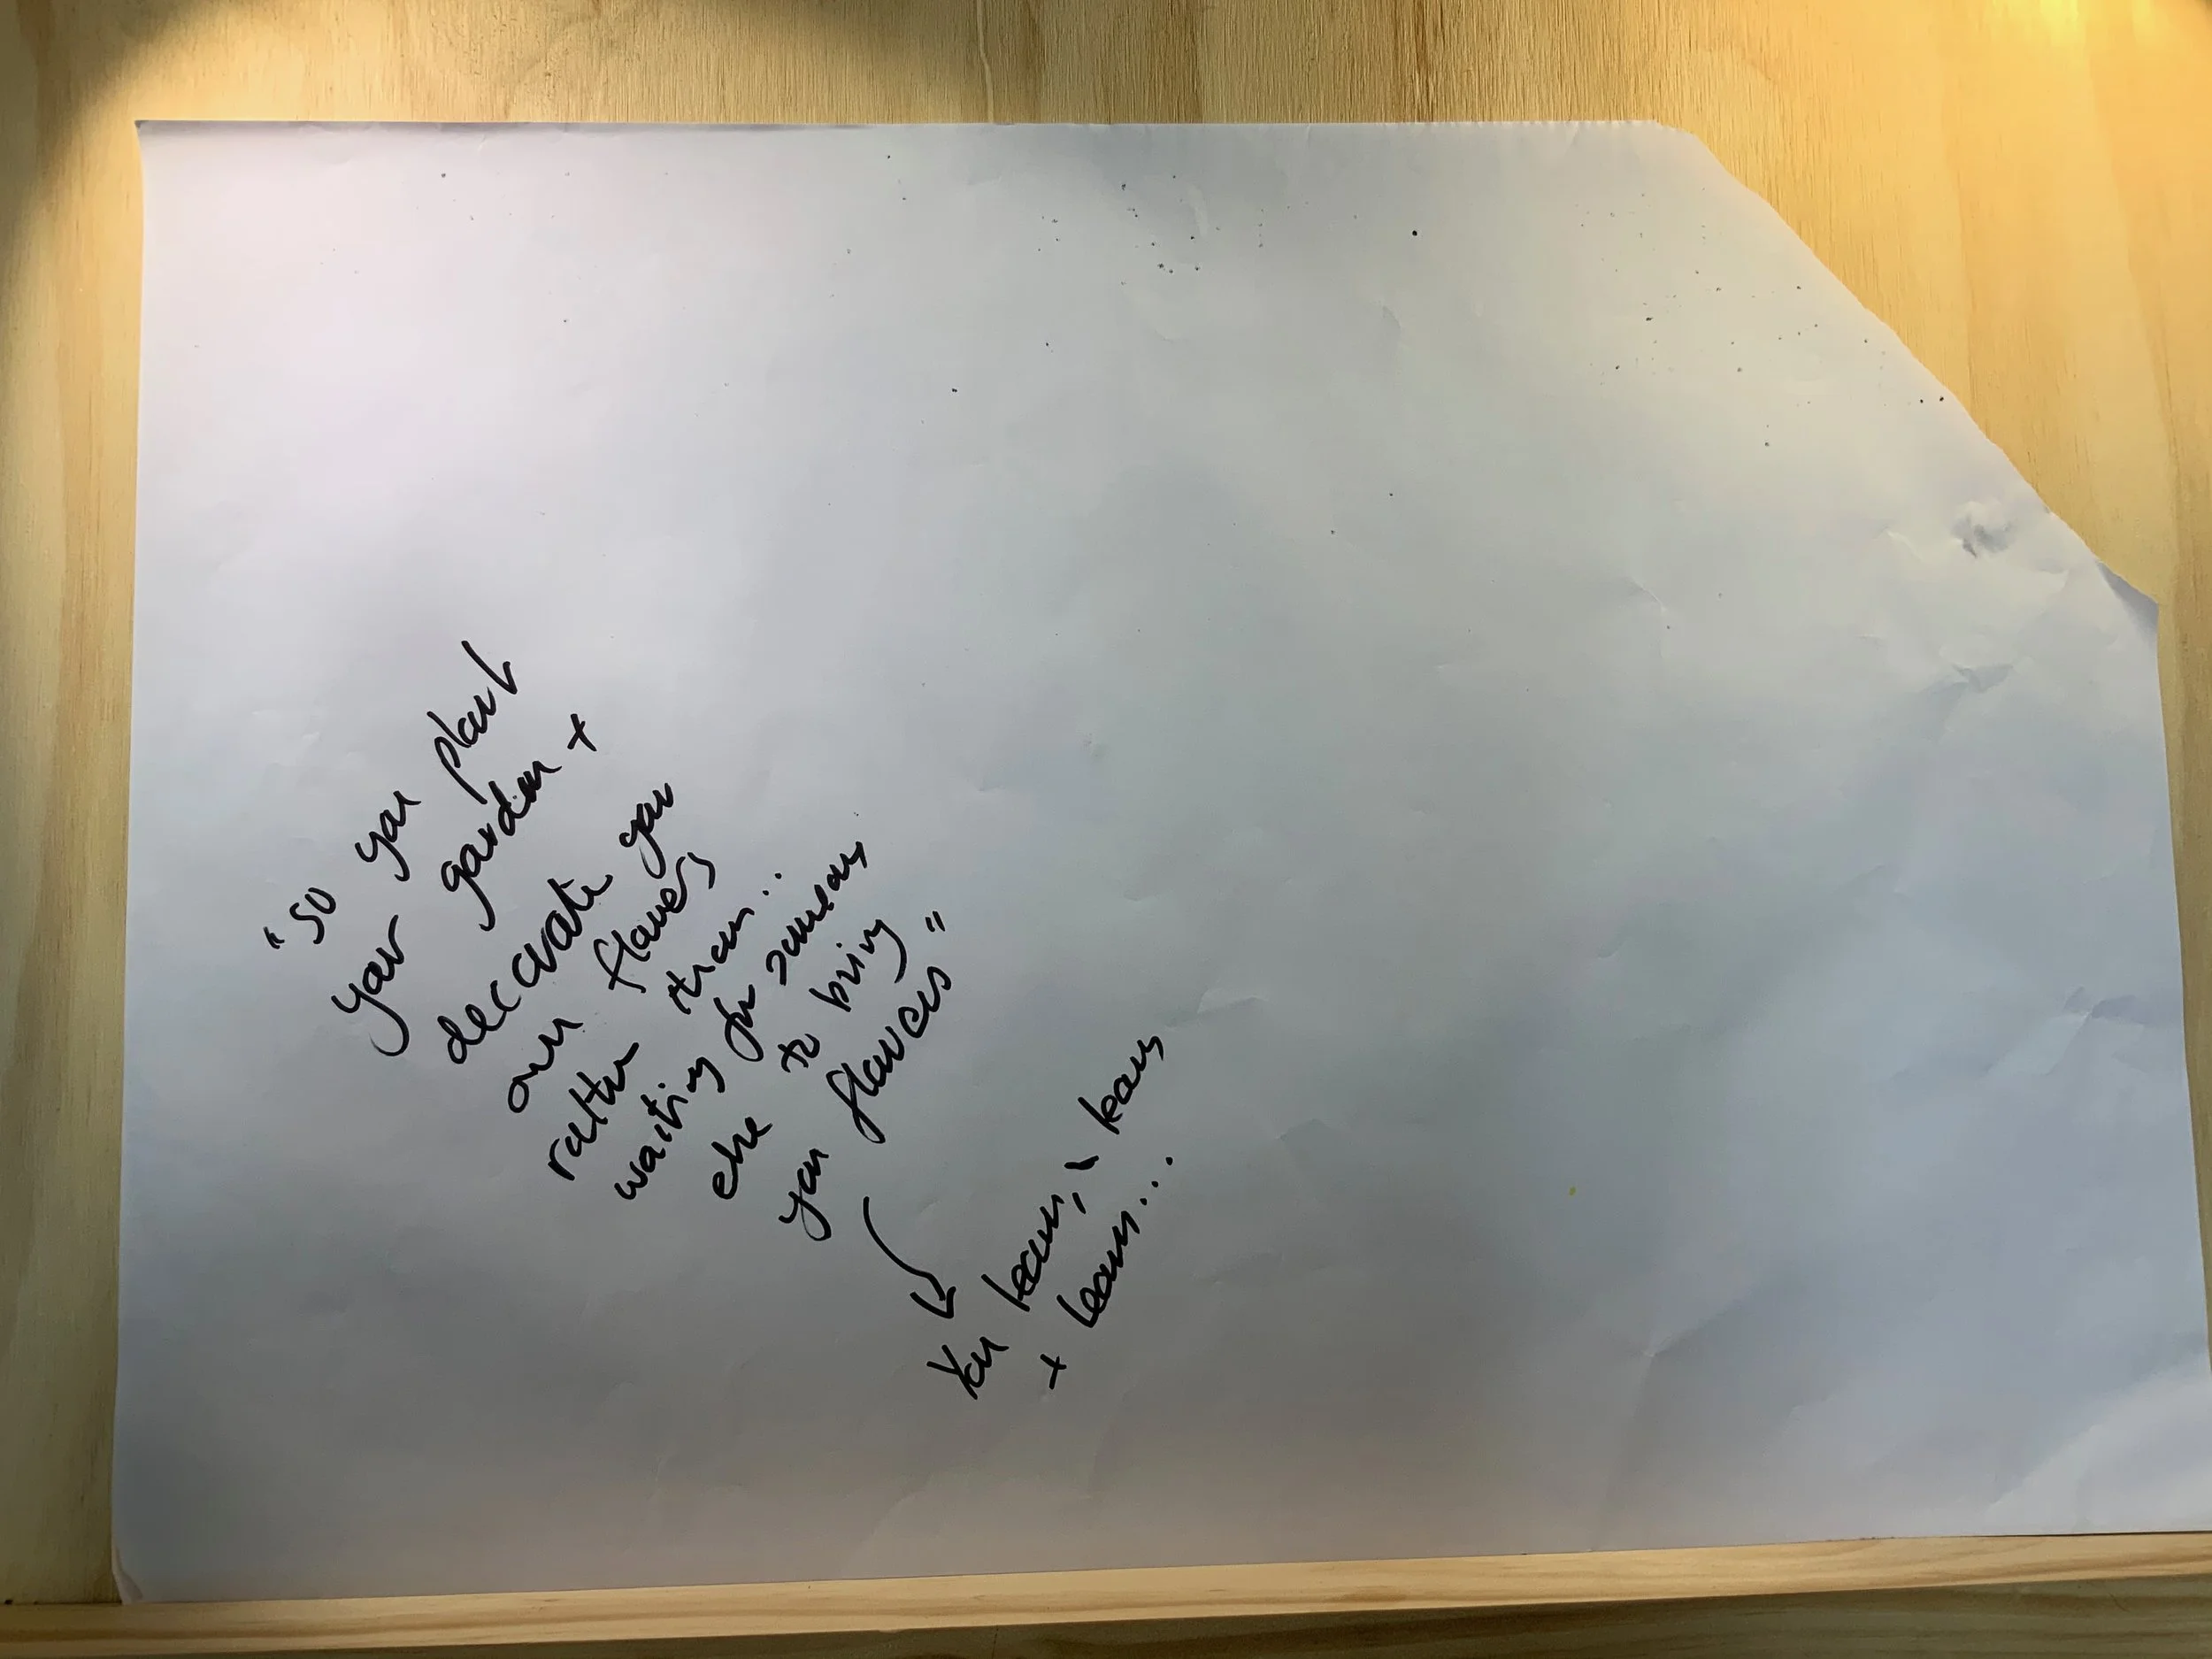 "so you plant
your garden +
decorate your
own flowers
rather than..
waiting for someone
else to bring
you flowers"
You learn, & learn
+ learn...